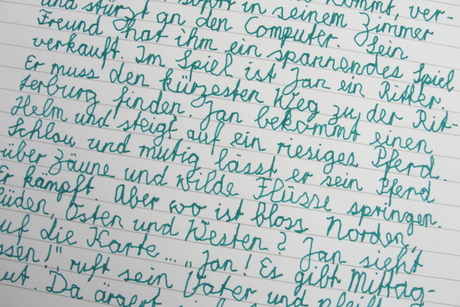 sofort in seinem Zimmer
und stürzt an den Computer. Sein
Freund hat ihm ein spannendes Spiel
verkauft. Im Spiel ist Jan ein Ritter.
Er muss den kürzesten Weg zu der Rit-
terburg finden. Jan bekommt einen
Helm und steigt auf ein riesiges Pferd.
Schlau und mutig lässt er sein Pferd
über Zäune und wilde Flüsse springen.
Er kämpft. Aber wo ist bloss Norden,
Süden, Osten und Westen? Jan sieht
auf die Karte... "Jan! Es gibt Mittag-
essen!" ruft sein Vater und
gut. Da ärgert